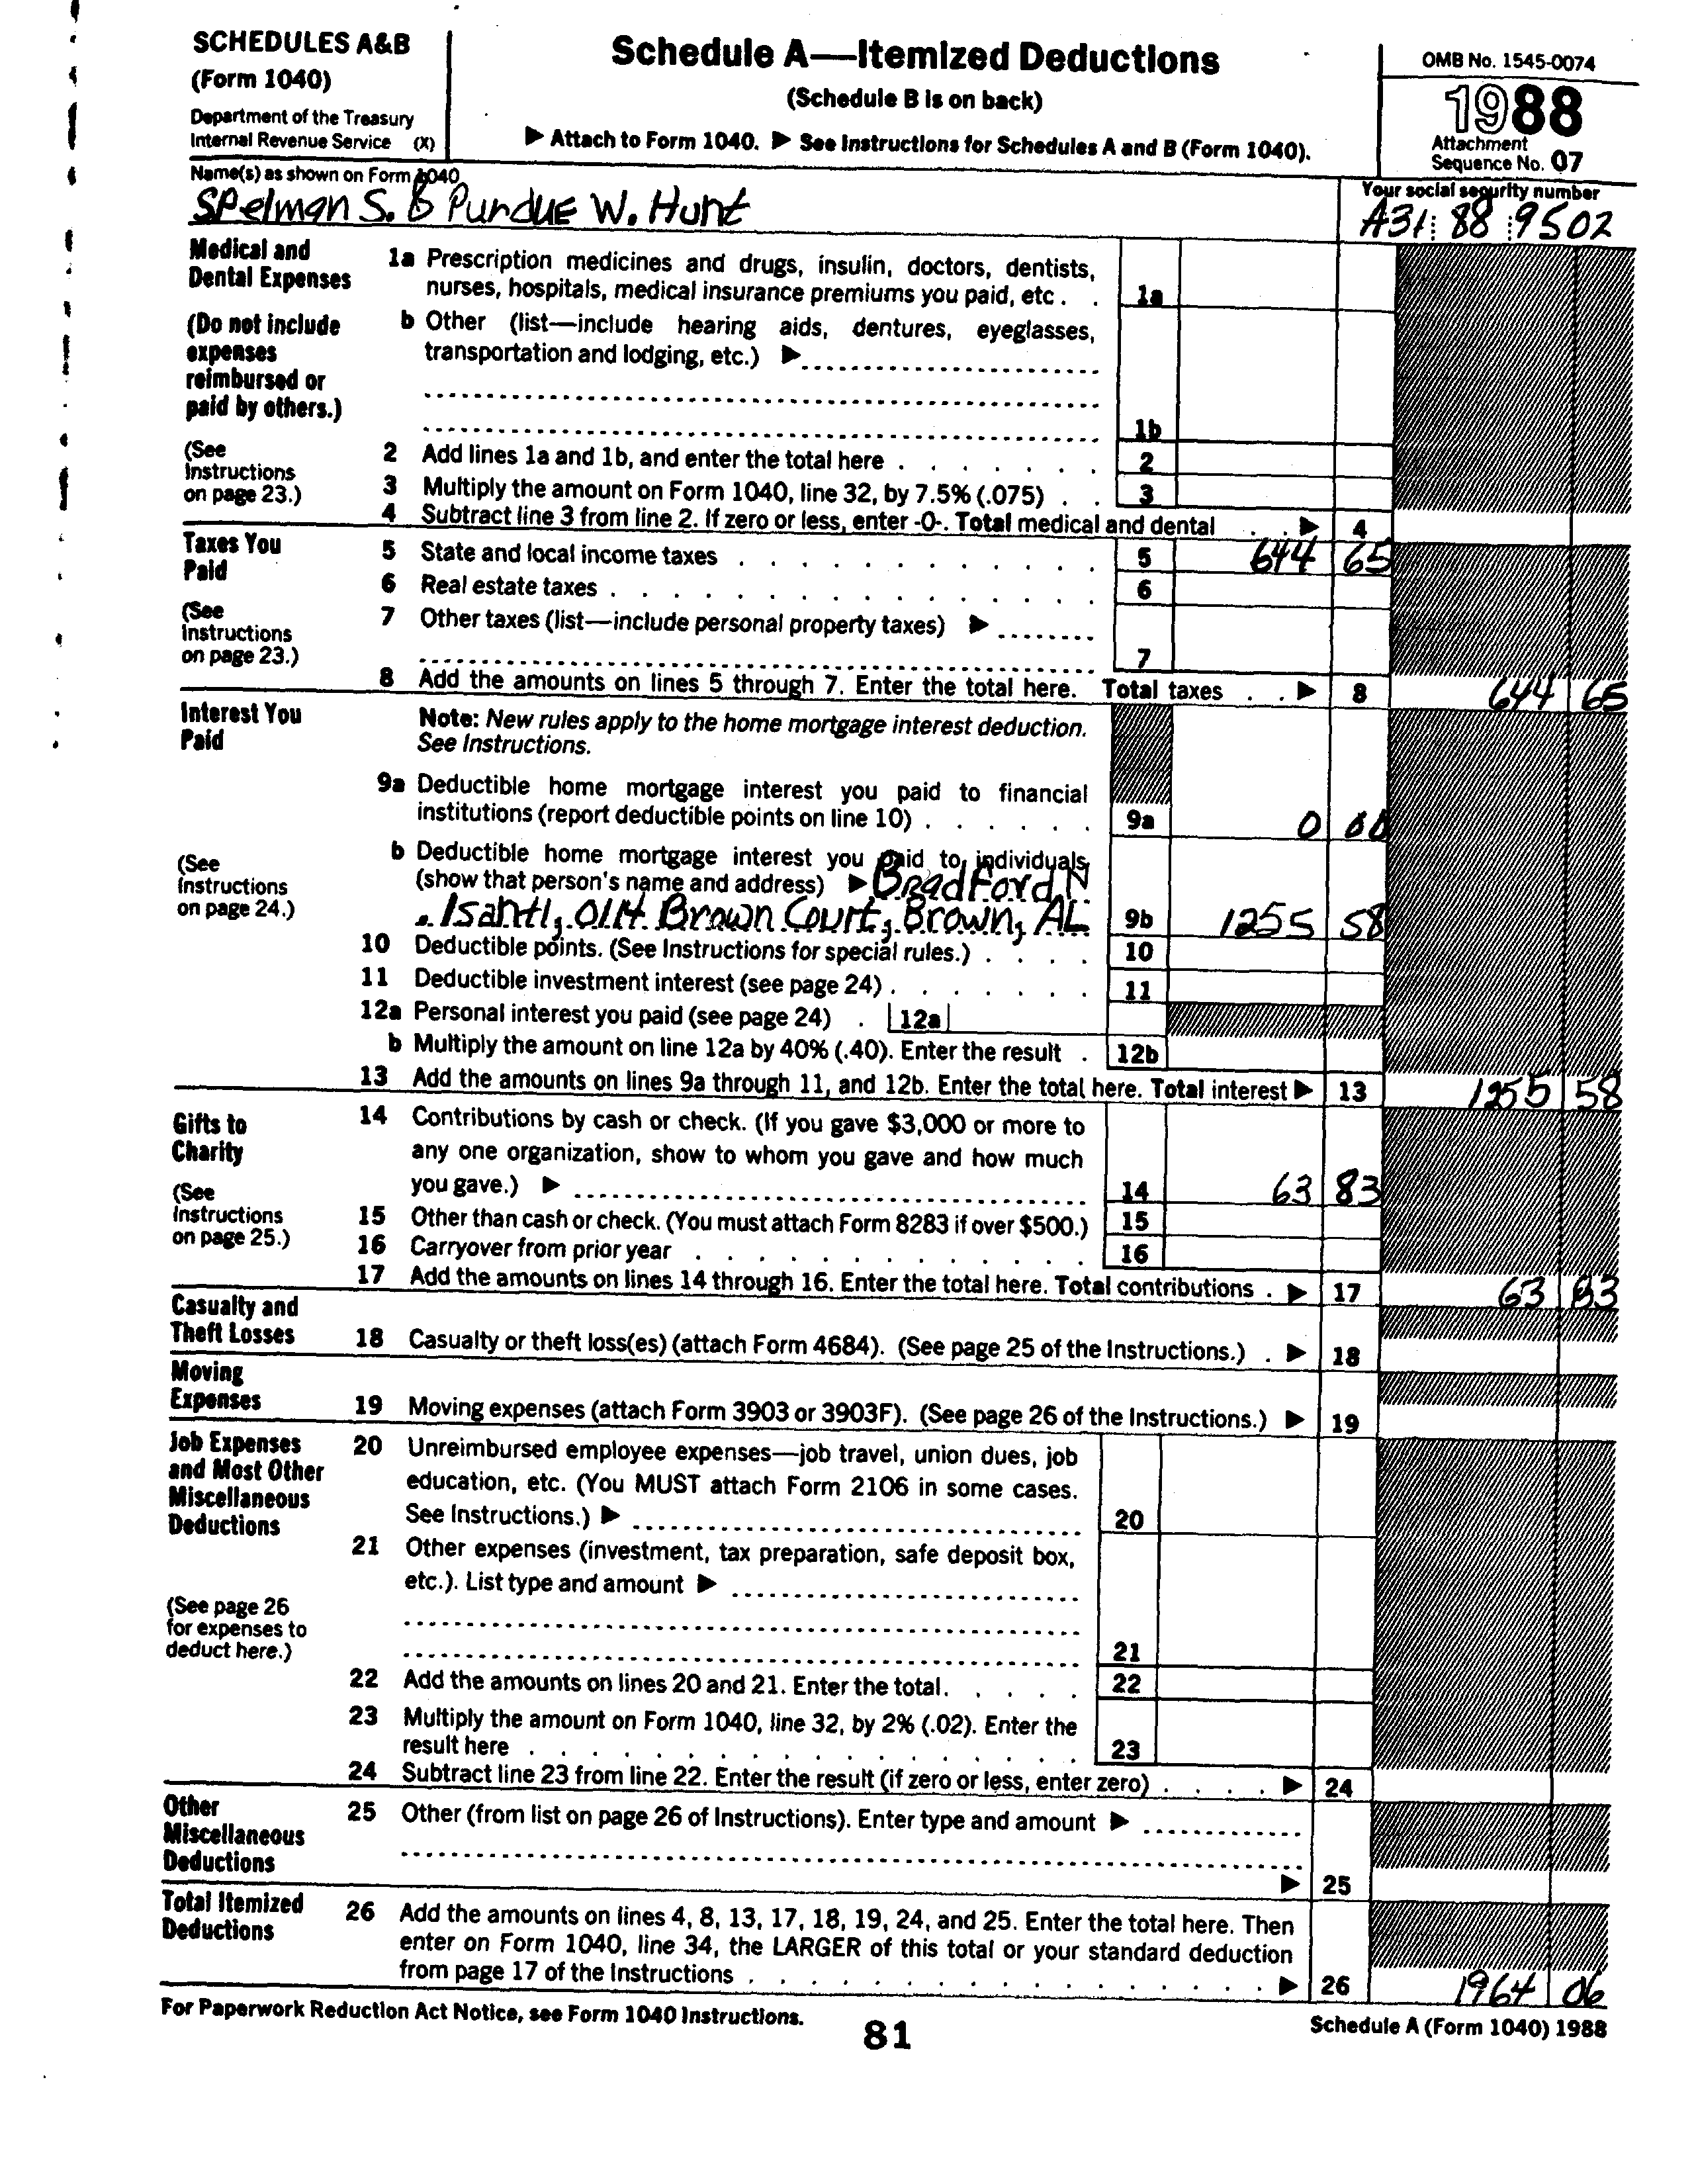 SCHEDULES A&B
(Form 1040)
Department of the Treasury
Internal Revenue Service (X)
Schedule A—Itemized Deductions
(Schedule B is on back)
▶ Attach to Form 1040. ▶ See Instructions for Schedules A and B (Form 1040).
OMB No. 1545-0074
1988
Attachment
Sequence No. 07
Name(s) as shown on Form 1040
Spelman S. & Purdue W. Hunt
Your social security number
A31 88 9502
Medical and
Dental Expenses
(Do not include
expenses
reimbursed or
paid by others.)
(See
Instructions
on page 23.)
1a Prescription medicines and drugs, insulin, doctors, dentists,
nurses, hospitals, medical insurance premiums you paid, etc . . 1a
b Other (list—include hearing aids, dentures, eyeglasses,
transportation and lodging, etc.) ▶
1b
2 Add lines 1a and 1b, and enter the total here . . . . . . . 2
3 Multiply the amount on Form 1040, line 32, by 7.5% (.075) . . 3
4 Subtract line 3 from line 2. If zero or less, enter -0-. Total medical and dental . . ▶ 4
Taxes You
Paid
(See
Instructions
on page 23.)
5 State and local income taxes . . . . . . . . . . . . 5 644 65
6 Real estate taxes . . . . . . . . . . . . . . . . 6
7 Other taxes (list—include personal property taxes) ▶
7
8 Add the amounts on lines 5 through 7. Enter the total here. Total taxes . . ▶ 8 644 65
Interest You
Paid
(See
Instructions
on page 24.)
Note: New rules apply to the home mortgage interest deduction.
See Instructions.
9a Deductible home mortgage interest you paid to financial
institutions (report deductible points on line 10) . . . . . . 9a 0 00
b Deductible home mortgage interest you paid to individuals
(show that person's name and address) ▶ Bradford N
Isanti, 0114 Brown Court, Brown, AL 9b 1255 58
10 Deductible points. (See Instructions for special rules.) . . . . 10
11 Deductible investment interest (see page 24) . . . . . . . 11
12a Personal interest you paid (see page 24) . 12a
b Multiply the amount on line 12a by 40% (.40). Enter the result . 12b
13 Add the amounts on lines 9a through 11, and 12b. Enter the total here. Total interest ▶ 13 1255 58
Gifts to
Charity
(See
Instructions
on page 25.)
14 Contributions by cash or check. (If you gave $3,000 or more to
any one organization, show to whom you gave and how much
you gave.) ▶ 14 63 83
15 Other than cash or check. (You must attach Form 8283 if over $500.) 15
16 Carryover from prior year . . . . . . . . . . . . . 16
17 Add the amounts on lines 14 through 16. Enter the total here. Total contributions . ▶ 17 63 83
Casualty and
Theft Losses
18 Casualty or theft loss(es) (attach Form 4684). (See page 25 of the Instructions.) . ▶ 18
Moving
Expenses
19 Moving expenses (attach Form 3903 or 3903F). (See page 26 of the Instructions.) ▶ 19
Job Expenses
and Most Other
Miscellaneous
Deductions
(See page 26
for expenses to
deduct here.)
20 Unreimbursed employee expenses—job travel, union dues, job
education, etc. (You MUST attach Form 2106 in some cases.
See Instructions.) ▶ 20
21 Other expenses (investment, tax preparation, safe deposit box,
etc.). List type and amount ▶
21
22 Add the amounts on lines 20 and 21. Enter the total. . . . . . 22
23 Multiply the amount on Form 1040, line 32, by 2% (.02). Enter the
result here . . . . . . . . . . . . . . . . . . 23
24 Subtract line 23 from line 22. Enter the result (if zero or less, enter zero) . . . . ▶ 24
Other
Miscellaneous
Deductions
25 Other (from list on page 26 of Instructions). Enter type and amount ▶
▶ 25
Total Itemized
Deductions
26 Add the amounts on lines 4, 8, 13, 17, 18, 19, 24, and 25. Enter the total here. Then
enter on Form 1040, line 34, the LARGER of this total or your standard deduction
from page 17 of the Instructions . . . . . . . . . . . . . . . . . ▶ 26 1964 06
For Paperwork Reduction Act Notice, see Form 1040 Instructions.
81
Schedule A (Form 1040) 1988